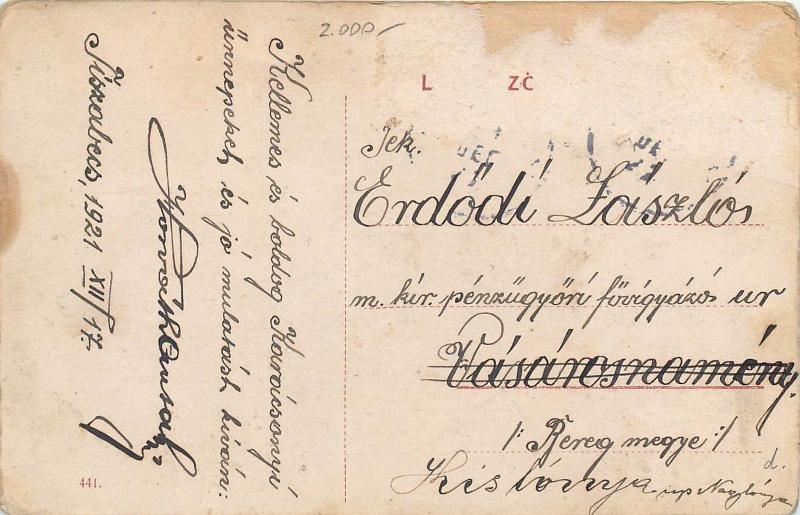 2.000/-
Kellemes és boldog Karácsonyi
ünnepeket, és jó mulatást kíván:
Tiszabecs, 1921 XII/17.
L ZČ
Tek.
Erdődi László
m. kir. pénzügyőri fővigyázó úr
Vásárosnamény.
/: Bereg megye :/
Kislónya u.p. Naglónya
d.
441.